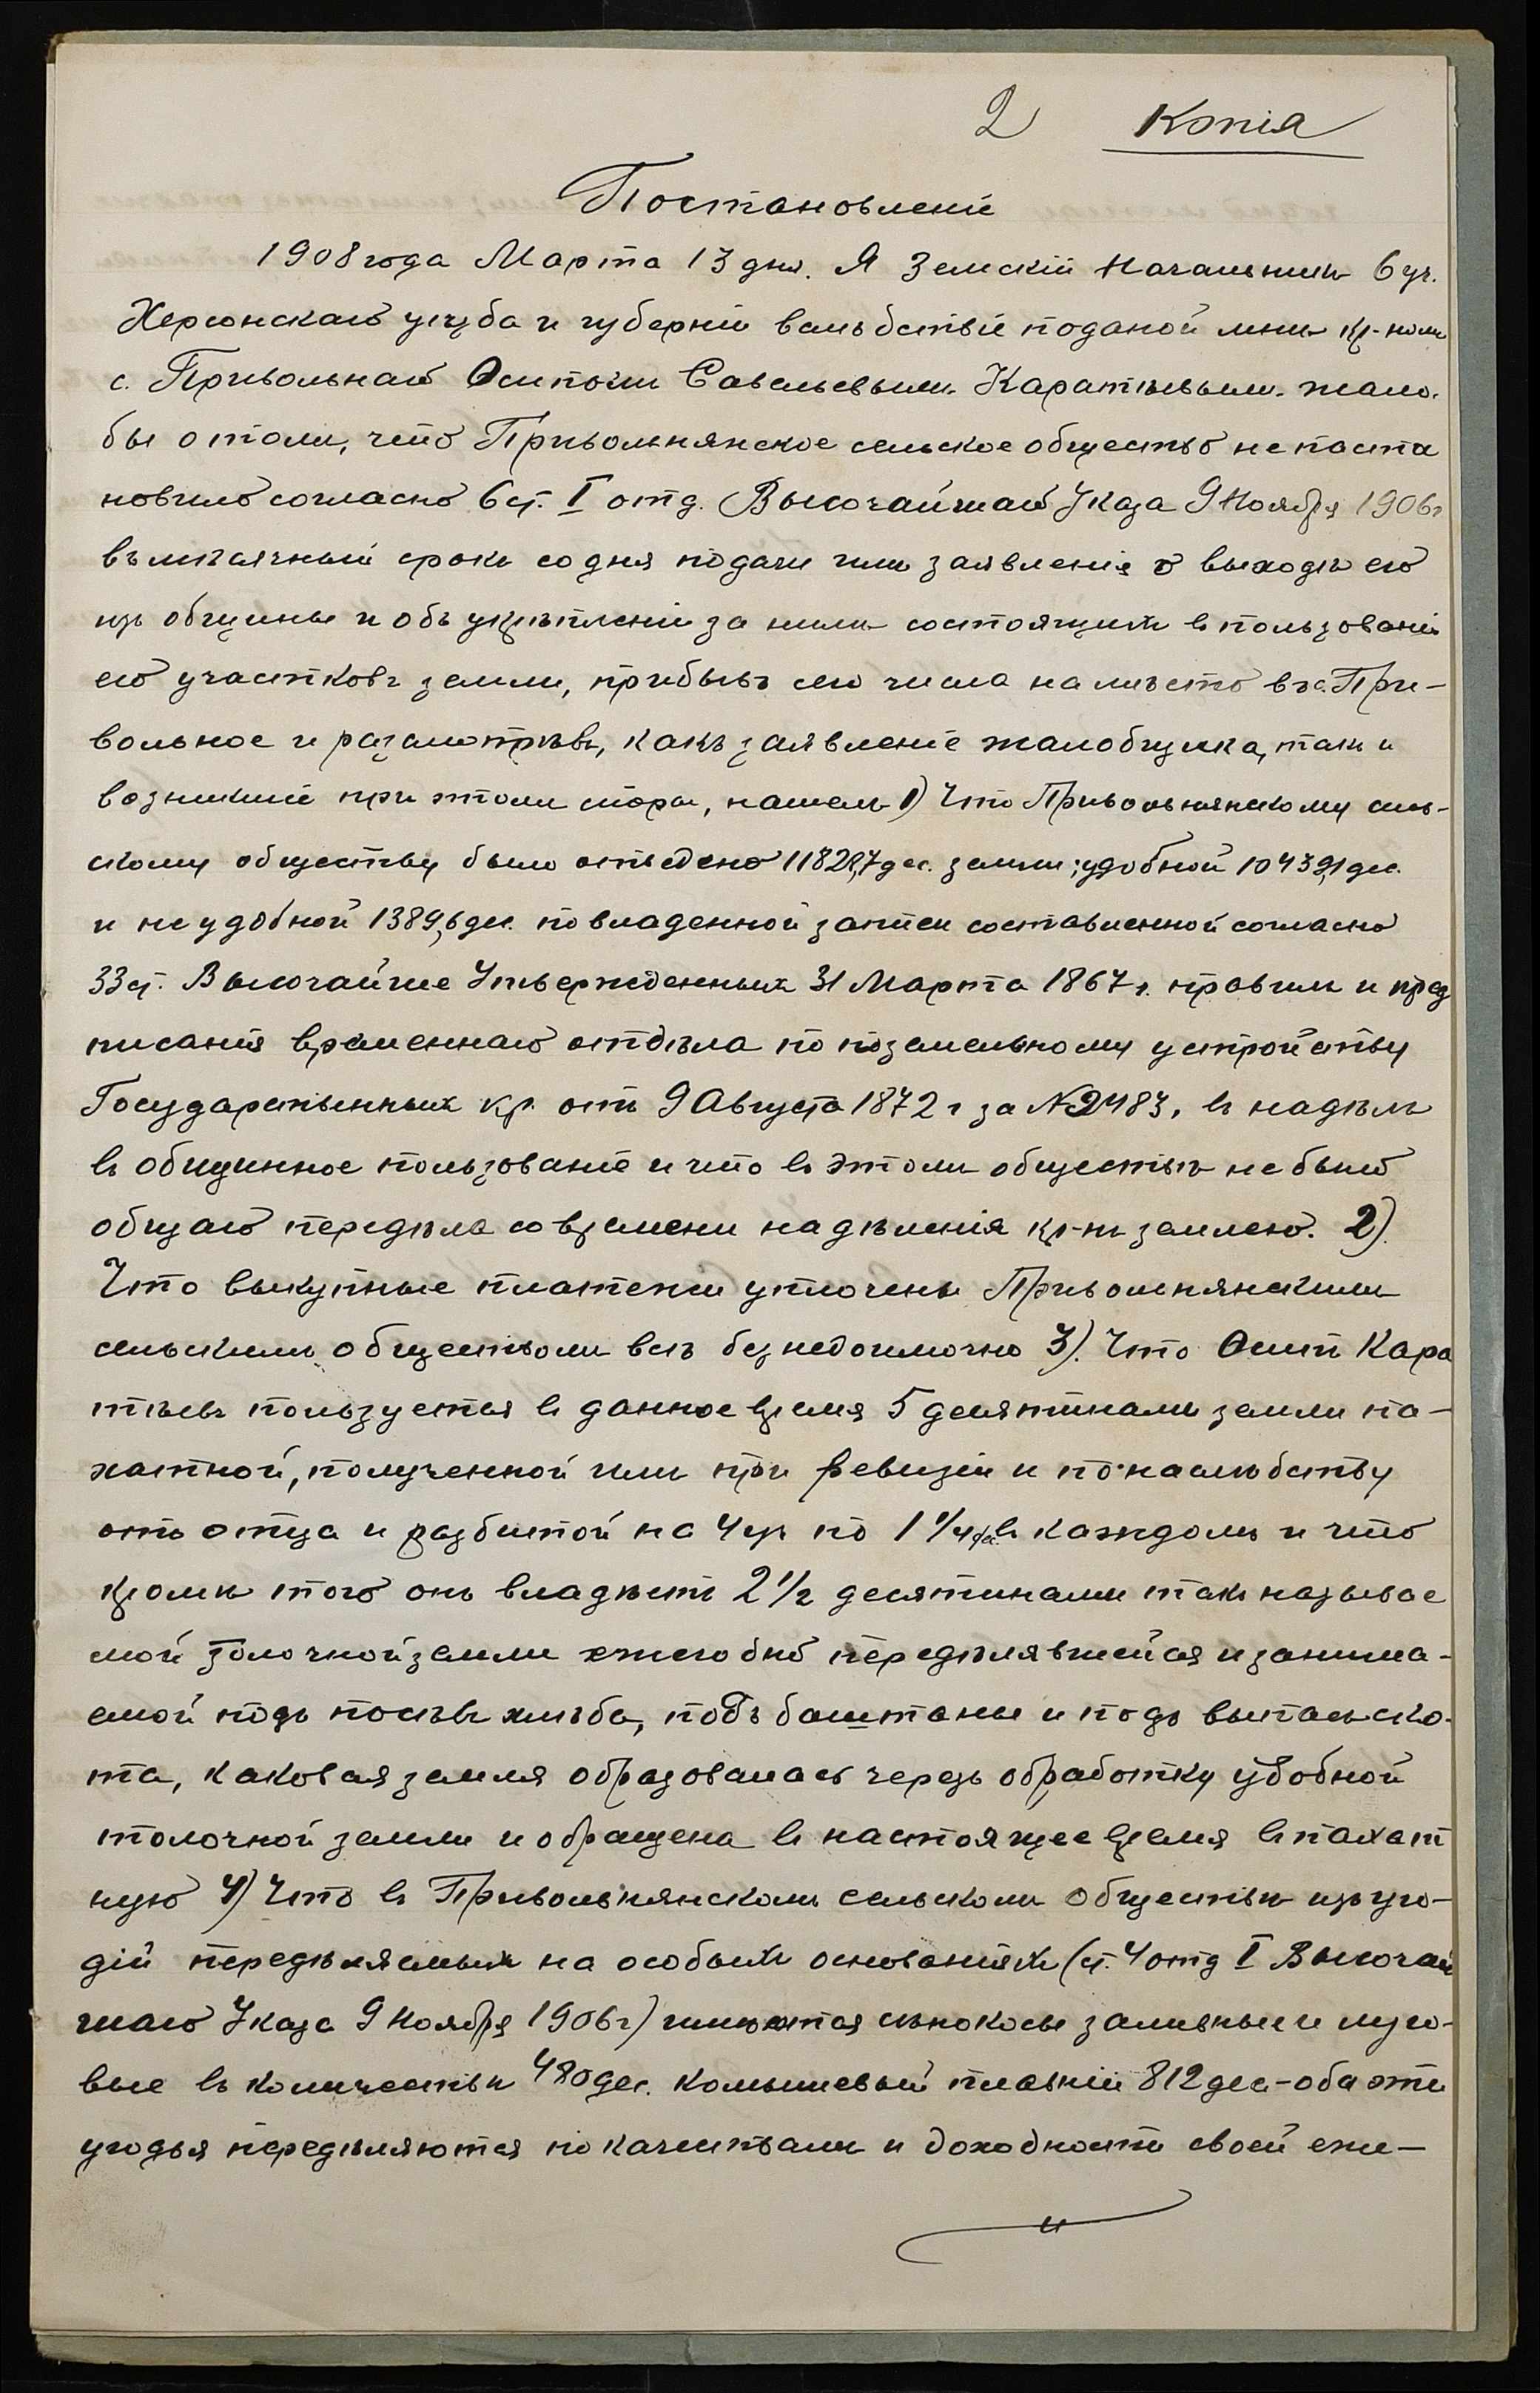 2 Копія
Постановленіе
1908 года Марта 13 дня. Я Земскій Начальникъ 6 уч.
Херсонскаго уѣзда и губерніи вслѣдствіе поданой мнѣ кр-номъ
с. Привольнаго Осипомъ Савельевымъ Каратѣевымъ жало-
бы о томъ, что Привольнянское сельское общество не поста
новило согласно 6 ст. I отд. Высочайшаго Указа 9 Ноября 1906 г
въ мѣсячный срокъ со дня подачи имъ заявленія о выходѣ его
изъ общины и объ укрѣпленіи за нимъ состоящихъ въ пользованіи
его участковъ земли, прибывъ сего числа на мѣсто въ с. При-
вольное и разсмотрѣвъ, какъ заявленіе жалобщика, такъ и
возникшіе при этомъ споры, нашелъ 1) Что Привольнянскому сель-
скому обществу было отведено 11821,7 дес. земли; удобной 10432,1 дес.
и не удобной 1389,6 дес. по владенной записи составленной согласно
33 ст. Высочайше Утвержденныхъ 31 Марта 1867 г. правилъ и пред
писанія временнаго отдѣла по поземельному устройству
Государственныхъ кр. отъ 9 Августа 1872 г за № 2483, въ надѣлъ
въ общинное пользованіе и что въ этомъ обществѣ не было
общаго передѣла со времени надѣленія кр-нъ землею. 2)
Что выкупные платежи уплочены Привольнянскимъ
сельскимъ обществомъ всѣ безнедоимочно 3). Что Осипъ Кара
тѣевъ пользуется въ данное время 5 десятинами земли па-
хатной, полученной имъ при ревизіи и по наслѣдству
отъ отца и разбитой на 4 уч по 1 1/4 дес. въ каждомъ и что
кромѣ того онъ владѣетъ 2 1/2 десятинами такъ называе
мой толочной земли ежегодно передѣлявшейся и занима-
емой подъ посѣвъ хлѣба, подъ баштаны и подъ выпасъ ско-
та, каковая земля образовалась черезъ обработку удобной
толочной земли и обращена въ настоящее время въ пахат
ную 4) Что въ Привольнянскомъ сельскомъ Обществѣ изъ уго-
дій передѣляемыхъ на особыхъ основаніяхъ (ст. 4 отд I Высочай
шаго Указа 9 Ноября 1906 г) имѣются сѣнокосы заливные и луго-
вые въ количествѣ 480 дес. камышевый плавній 812 дес - оба эти
угодья передѣляются по качествамъ и доходности своей еже-